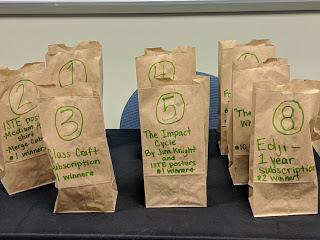 2
ISTE poster
-Medium
shirt
-Merge Cube
#1 winner
1
3
Class Craft
Subscription
#1 winner
1
5
The Impact
Cycle
By Jim Knight
and
ISTE posters
#1 winner
The
8
Edji -
1 year
subscription
#2 winners